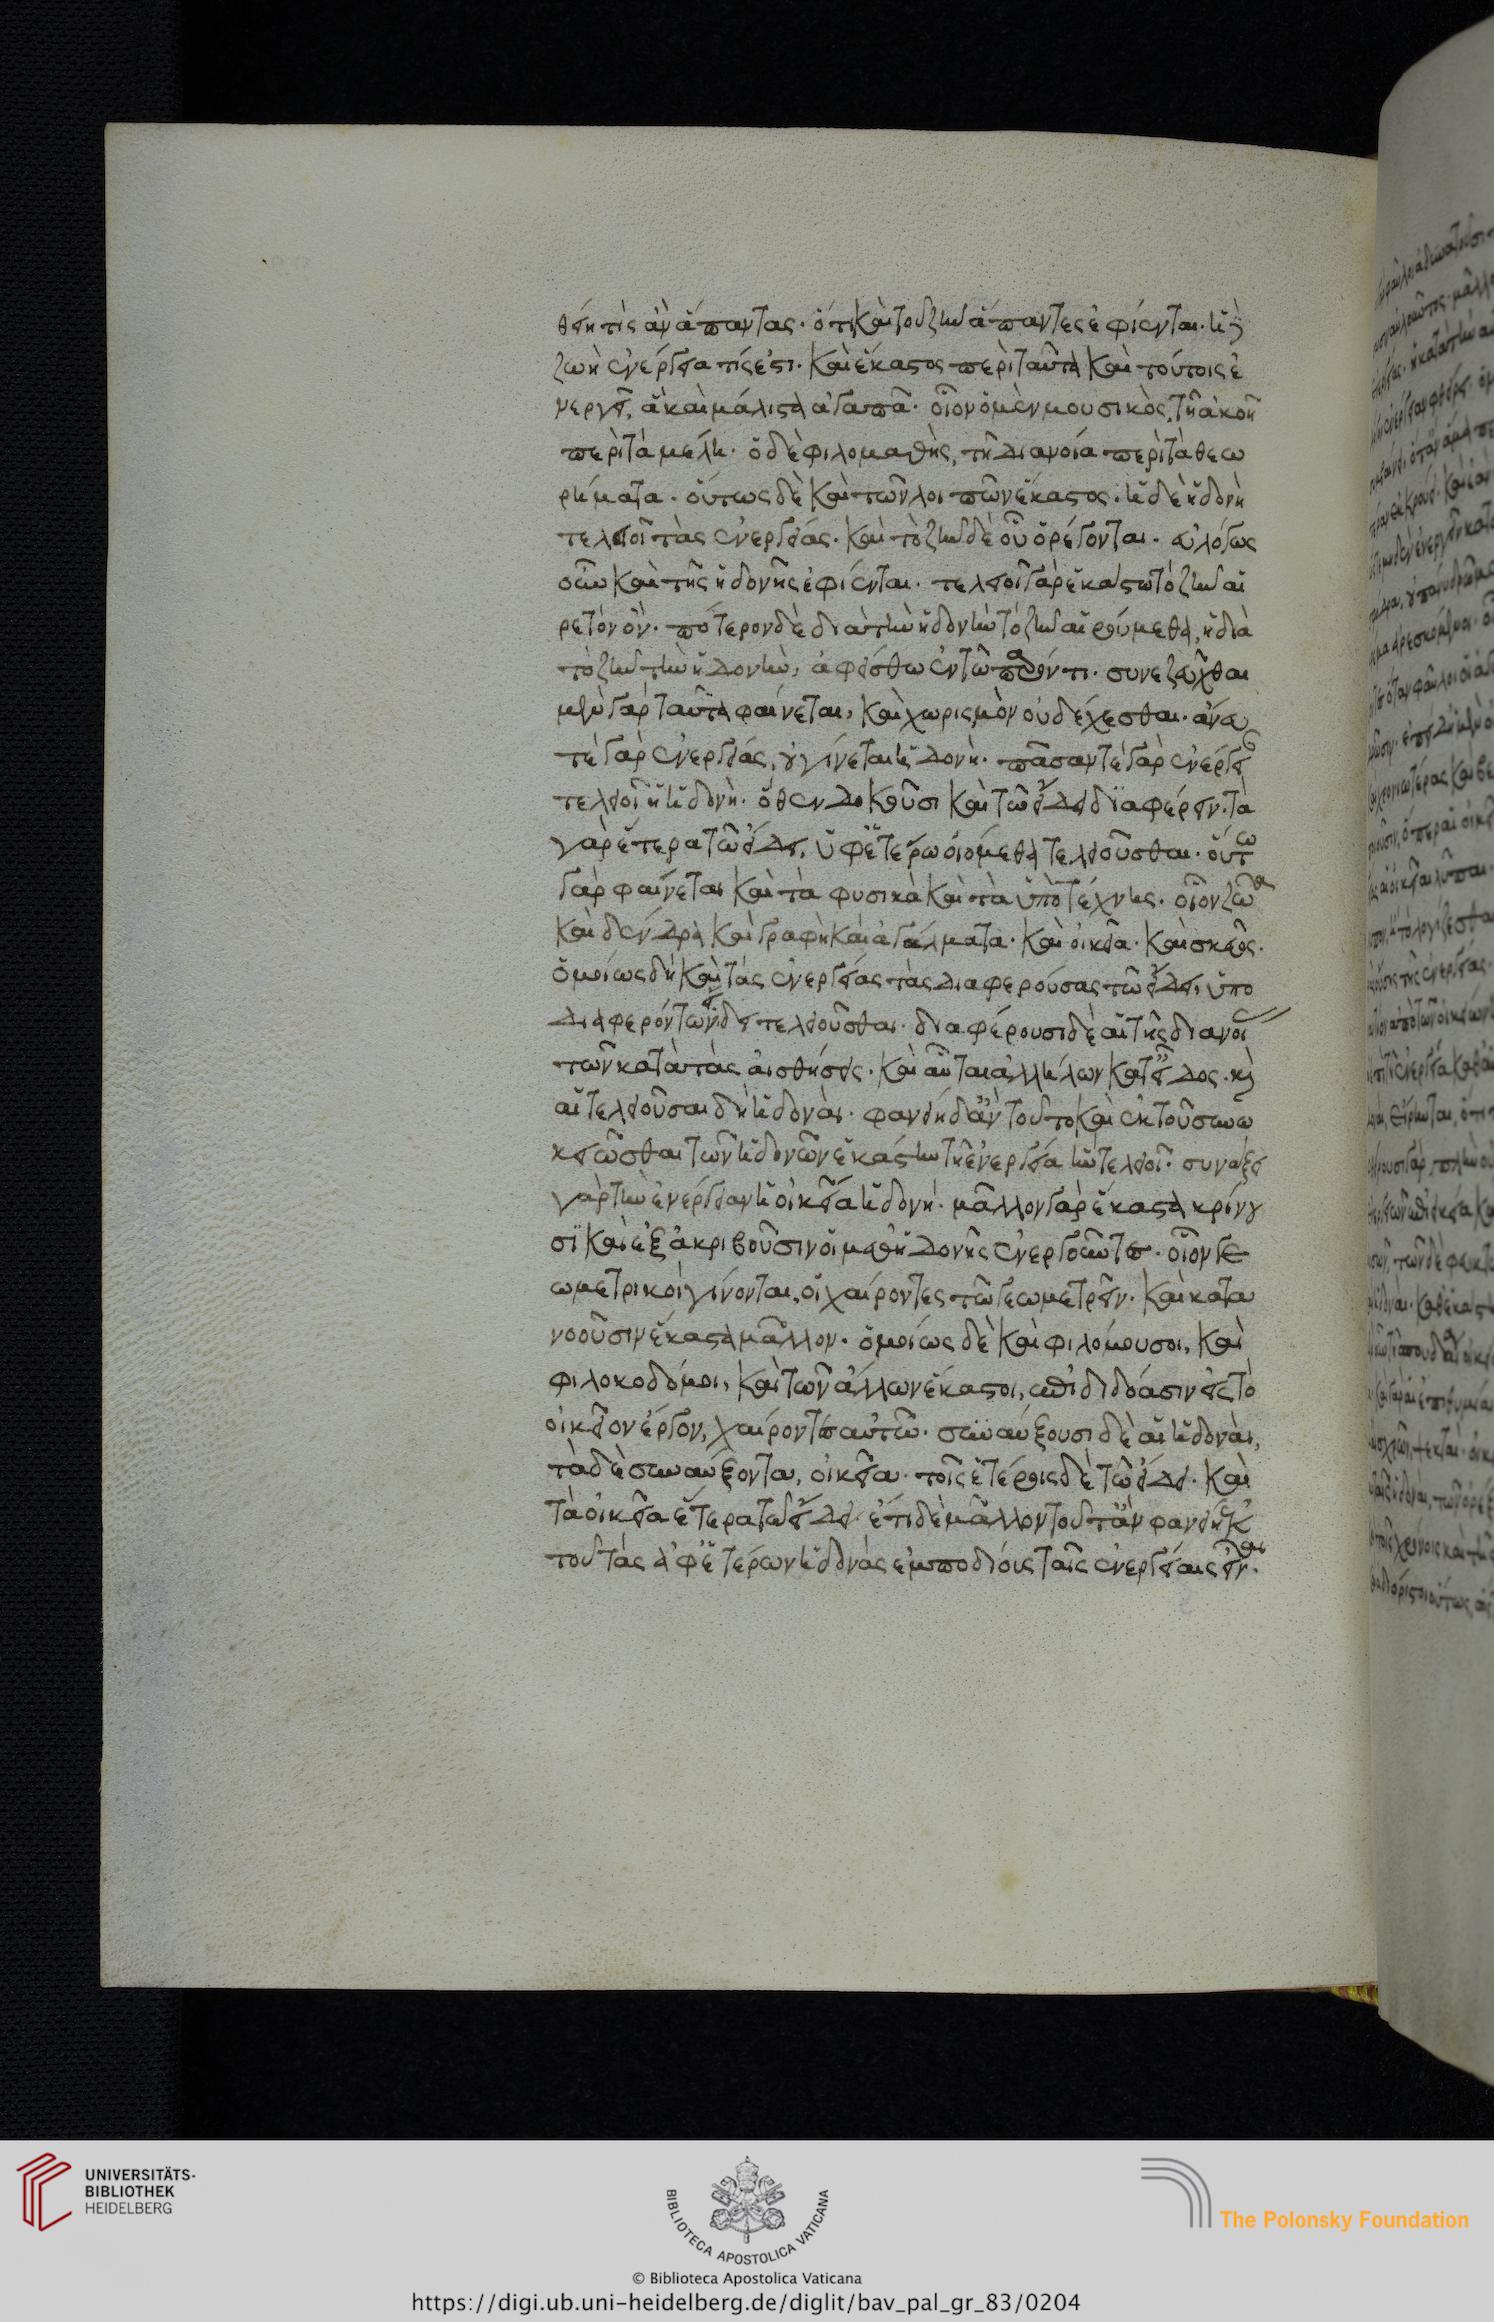 θείη τὶς ἂν ἅπαντας. ὅτι καὶ τοῦ ζῆν ἅπαντες ἐφίενται. ἡ δὲ
ζωὴ ἐνέργεια τίς ἐστι. καὶ ἕκαστος περὶ ταῦτα καὶ τούτοις ἐ
νεργεῖ, ἃ καὶ μάλιστα ἀγαπᾶ. οἷον ὁ μὲν μουσικὸς, τῆ ἀκοῆ
περὶ τὰ μέλη. ὁ δὲ φιλομαθὴς, τῆ διανοία περὶ τὰ θεω
ρήματα. οὕτως δὲ καὶ τῶν λοιπῶν ἕκαστος. ἡ δὲ ἡδονὴ
τελειοῖ τὰς ἐνεργείας. καὶ τὸ ζῆν δὲ οὗ ὀρέγονται. εὐλόγως
οὖν καὶ τῆς ἡδονῆς ἐφίενται. τελειοῖ γὰρ ἑκάστω τὸ ζῆν αἱ
ρετὸν ὄν. πότερον δὲ διὰ τὴν ἡδονὴν τὸ ζῆν αἱρούμεθα, ἢ διὰ
τὸ ζῆν τὴν ἡδονὴν, ἀφείσθω ἐν τῶ παρόντι. συνεζεῦχθαι
μὲν γὰρ ταῦτα φαίνεται, καὶ χωρισμὸν οὐ δέχεσθαι. ἄνευ
τε γὰρ ἐνεργείας, οὐ γίνεται ἡδονή. πᾶσαν τε γὰρ ἐνέργειαν
τελειοῖ ἡ ἡδονή. ὅθεν δοκοῦσι καὶ τῶ εἴδει διαφέρειν. τὰ
γὰρ ἕτερα τῶ εἴδει, ὑφ' ἑτέρων οἰόμεθα τελειοῦσθαι. οὕτω
γὰρ φαίνεται καὶ τὰ φυσικὰ καὶ τὰ ὑπὸ τέχνης. οἷον ζῶα
καὶ δένδρα καὶ γραφὴ καὶ ἀγάλματα. καὶ οἰκεία. καὶ σκεῦος.
ὁμοίως δὴ καὶ τὰς ἐνεργείας τὰς διαφερούσας τῶ εἴδει, ὑπὸ
διαφερόντων εἴδει τελειοῦσθαι. διαφέρουσι δὲ αἱ τῆς διανοίας
τῶν κατὰ τὰς αἰσθήσεις. καὶ αὗται ἀλλήλων κατ' εἶδος. καὶ
αἱ τελειοῦσαι δὴ ἡδοναί. φανείη δ' ἂν τοῦτο καὶ ἐκ τοῦ συνω
κειῶσθαι τῶν ἡδονῶν ἑκάστην τῆ ἐνεργεία ἣν τελειοῖ. συναύξει
γὰρ τὴν ἐνέργειαν ἡ οἰκεία ἡδονή. μᾶλλον γὰρ ἕκαστα κρίνου
σι καὶ ἐξακριβοῦσιν οἱ μεθ' ἡδονῆς ἐνεργοῦντες. οἷον γε
ωμετρικοὶ γίνονται, οἱ χαίροντες τῶ γεωμετρεῖν. καὶ κατα
νοοῦσιν ἕκαστα μᾶλλον. ὁμοίως δὲ καὶ φιλόμουσοι, καὶ
φιλοκοδόμοι, καὶ τῶν ἄλλων ἕκαστοι, ἐπιδιδόασιν εἰς τὸ
οἰκεῖον ἔργον, χαίροντες αὐτῶ. συναύξουσι δὲ αἱ ἡδοναὶ,
τὰ δὲ συναύξοντα, οἰκεῖα. τοῖς ἑτέροις δὲ τῶ εἴδει. καὶ
τὰ οἰκεῖα ἕτερα τῶ εἴδει. ἔτι δὲ μᾶλλον τοῦτ' ἂν φανείη ἐκ
τοῦ τὰς ἀφ' ἑτέρων ἡδονὰς ἐμποδίους ταῖς ἐνεργείαις εἶναι.
UNIVERSITÄTS-
BIBLIOTHEK
HEIDELBERG
BIBLIOTECA APOSTOLICA VATICANA
The Polonsky Foundation
© Biblioteca Apostolica Vaticana
https://digi.ub.uni-heidelberg.de/diglit/bav_pal_gr_83/0204